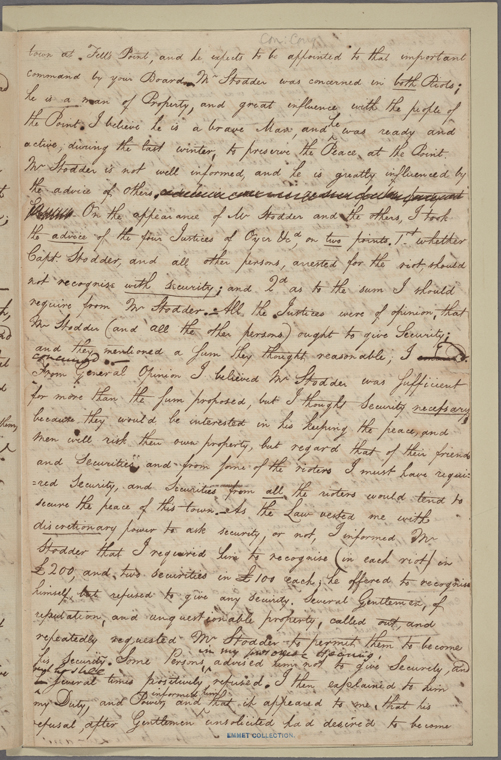 town at Fell's Point, and he expects to be appointed to that important
command by your Board. Mr Stodder was concerned in both Riots;
he is a man of Property, and great influence with the people of
the Point. I believe he is a brave Man and he was ready and
active, during the last winter, to preserve the Peace at the Point.
Mr Stodder is not well informed, and he is greatly influenced by
the advice of others
On the appearance of Mr Stodder and the others, I took
the advice of the four Justices of Oyer &c. on two points, 1st whether
Capt. Stodder, and all other persons, arrested for the riot should
not recognise with security; and 2d as to the sum I should
require from Mr Stodder. All the Justices were of opinion, that
Mr Stodder (and all the other persons) ought to give Security;
and they mentioned a sum they thought reasonable; I
concurred
From general Opinion I believed Mr Stodder was sufficient
for more than the sum proposed, but I thought security necessary,
because they would be interested in his keeping the peace, and
Men will risk their own property, but regard that of their friends
and Securities and from some of the rioters I must have requi-
-red Security, and Securities from all the rioters would tend to
secure the peace of this town. As the Law vested me with a
discretionary power to ask security, or not, I informed Mr
Stodder that I required him to recognise (in each riot) in
£200, and two securities in £100 each; he offered to recognise
himself, but refused to give any security. Several Gentlemen, of
reputation, and unquestionable property, called out and
repeatedly requested Mr Stodder to permit them to become
his Security. Some Persons, in my presence & hearing advised him not to give Security, and
several times positively refused. I then explained to him
my Duty, and Power, and inform'd him that it appeared to me that his
refusal, after Gentlemen unsolicited had desired to become
EMMET COLLECTION.